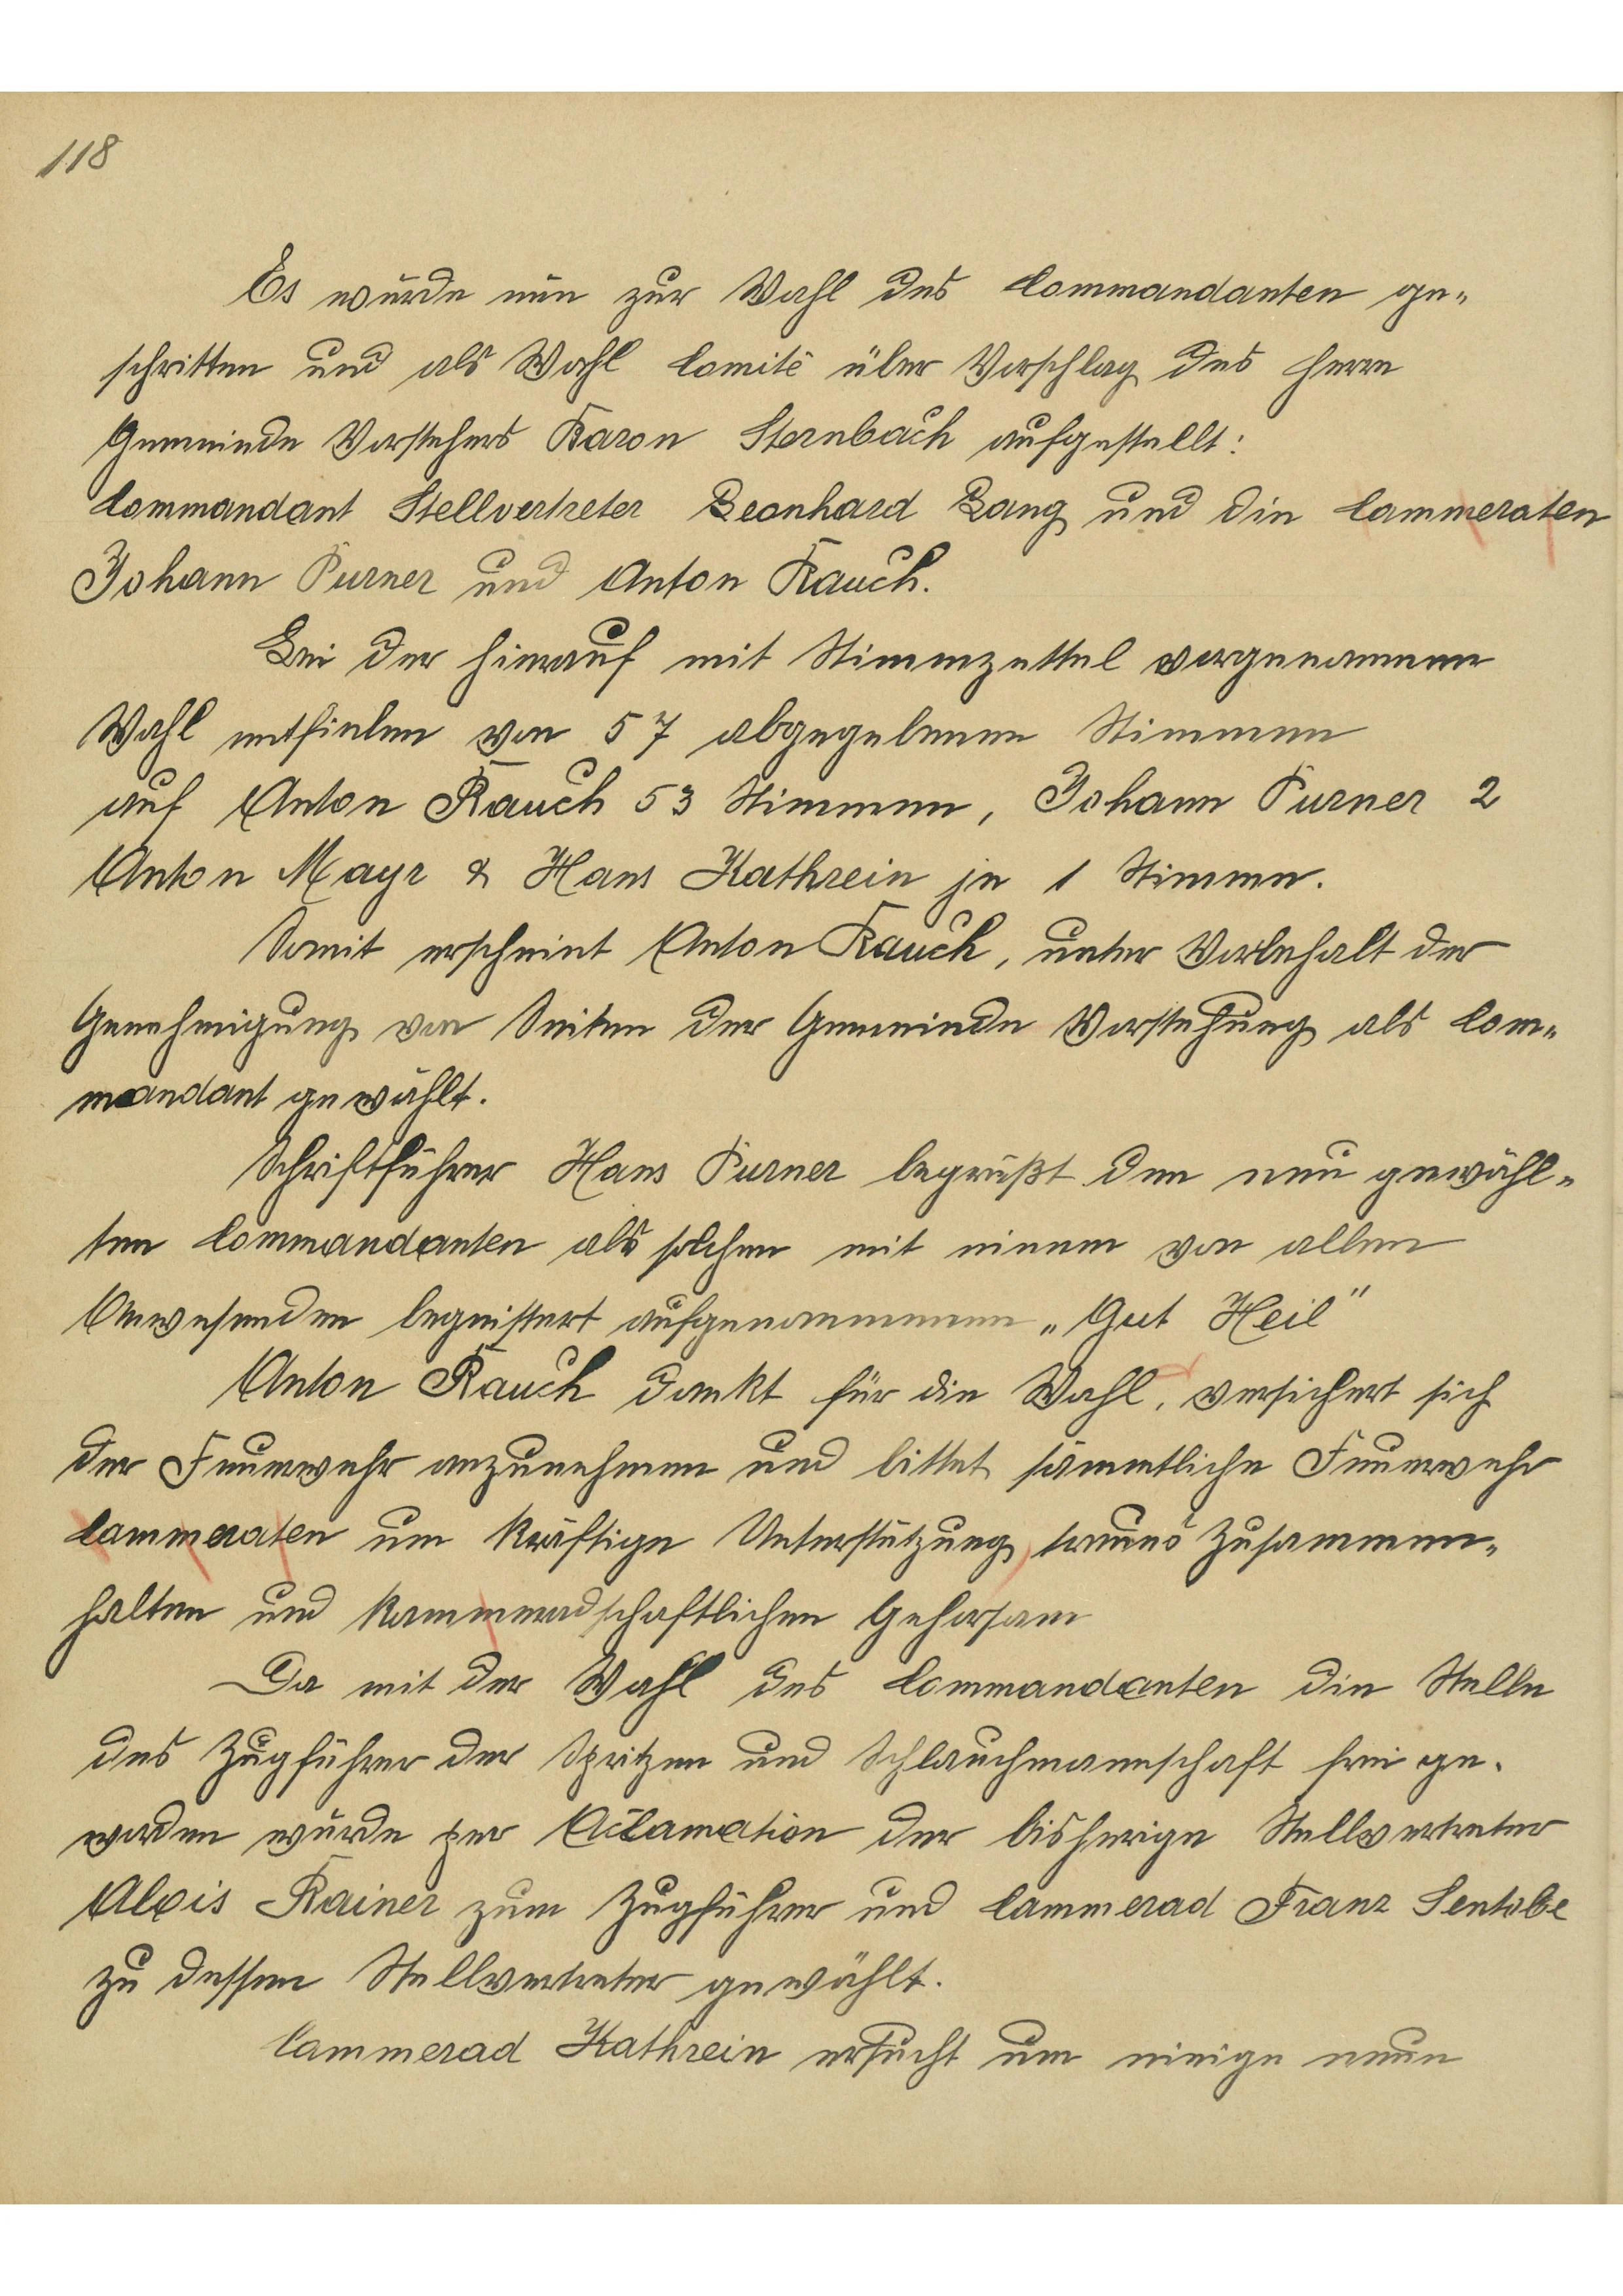 118
Es wurde nun zur Wahl des Commandanten ge-
schritten und als Wahl Comité über Vorschlag des Herrn
Gemeinde Vorstehers Baron Sternbach aufgestellt:
Commandant Stellvertreter Leonhard Lang und die Cammeraten
Johann Purner und Anton Rauch.
Bei der hierauf mit Stimmzettel vorgenommenen
Wahl entfielen von 57 abgegebenen Stimmen
auf Anton Rauch 53 Stimmen, Johann Purner 2
Anton Mayr & Hans Kathrein je 1 Stimme.
Somit erscheint Anton Rauch, unter Vorbehalt der
Genehmigung von Seiten der Gemeinde Vorstehung als Com-
mandant gewählt.
Schriftführer Hans Purner begrüßt den neu gewähl-
ten Commandanten als solchen mit einem von allen
Anwesenden begeistert aufgenommenen „Gut Heil"
Anton Rauch dankt für die Wahl, versichert sich
der Feuerwehr anzunehmen und bittet sämmtliche Feuerwehr
Cammeraten um kräftige Unterstützung, treues Zusammen-
halten und kammeradschaftlichen Gehorsam
Da mit der Wahl des Commandanten die Stelle
des Zugführer der Spritzen und Schlauchmannschaft frei ge-
worden wurde per Aclamation der bisherige Stellvertreter
Alois Rainer zum Zugführer und Cammerad Franz Sentobe
zu dessen Stellvertreter gewählt.
Cammerad Kathrein ersucht um einige neue